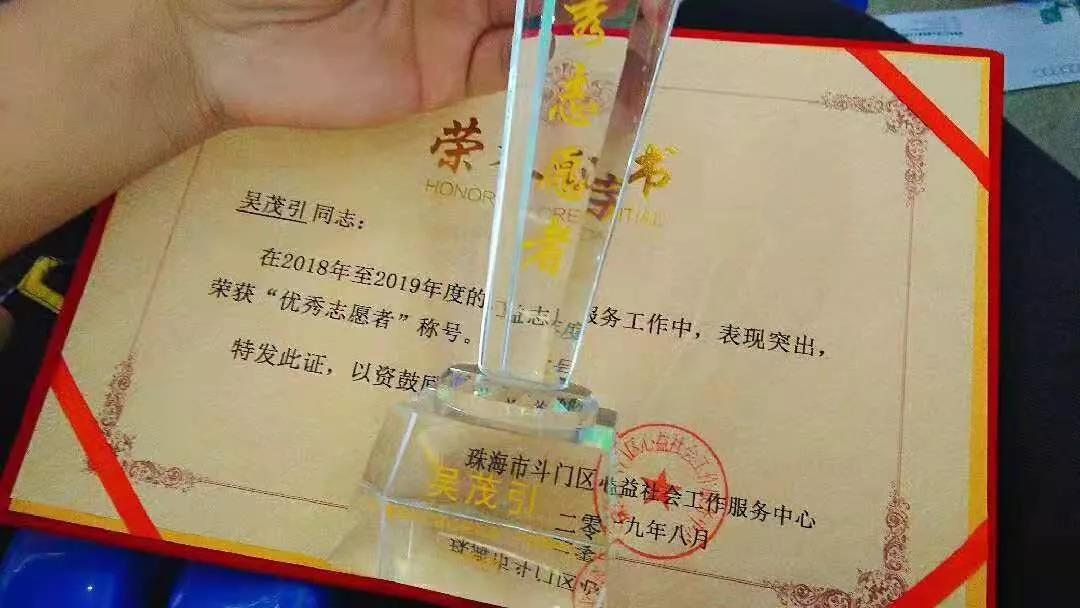 荣 书
HONOR CREDENTIAL
吴茂引 同志：
在2018年至2019年度的 益志 服务工作中，表现突出，
荣获“优秀志愿者”称号。
特发此证，以资鼓
珠海市斗门区 益社会工作服务中心
二零一九年八月
秀志愿者
吴茂引
珠海市斗门区
心益社会工